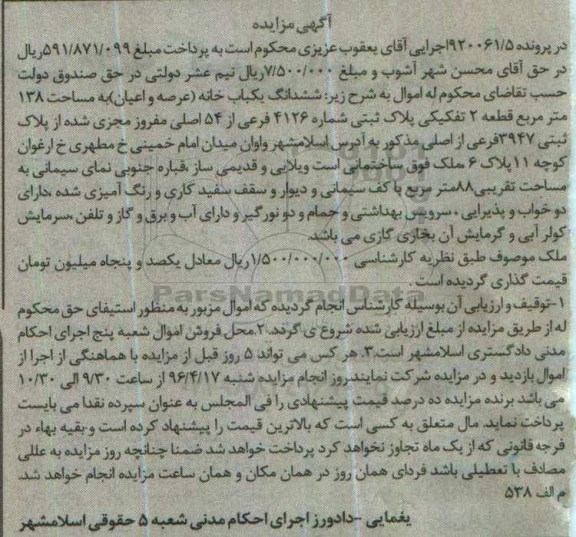 آگهی مزایده
در پرونده ۹۲۰۰۶۱/۵اجرایی آقای یعقوب عزیزی محکوم است به پرداخت مبلغ ۵۹۱/۸۷۱/۰۹۹ریال
در حق آقای محسن شهر آشوب و مبلغ ۷/۵۰۰/۰۰۰ریال نیم عشر دولتی در حق صندوق دولت
حسب تقاضای محکوم له اموال به شرح زیر: ششدانگ یکباب خانه (عرصه و اعیان)به مساحت ۱۳۸
متر مربع قطعه ۲ تفکیکی پلاک ثبتی شماره ۴۱۲۶ فرعی از ۵۴ اصلی مفروز مجزی شده از پلاک
ثبتی ۳۹۴۷فرعی از اصلی مذکور به آدرس اسلامشهر واوان میدان امام خمینی خ مطهری خ ارغوان
کوچه ۱۱پلاک ۶ ،ملک فوق ساختمانی است ویلایی و قدیمی ساز ،قباره جنوبی نمای سیمانی به
مساحت تقریبی۸۸متر مربع با کف سیمانی و دیوار و سقف سفید کاری و رنگ آمیزی شده ،دارای
دو خواب و پذیرایی ، سرویس بهداشتی و حمام و دو نورگیر و دارای آب و برق و گاز و تلفن ،سرمایش
کولر آبی و گرمایش آن بخاری گازی می باشد.
ملک موصوف طبق نظریه کارشناسی ۱/۵۰۰/۰۰۰/۰۰۰ریال معادل یکصد و پنجاه میلیون تومان
قیمت گذاری گردیده است .
ParsNamadData
۱-توقیف و ارزیابی آن بوسیله کارشناس انجام گردیده که اموال مزبور به منظور استیفای حق محکوم
له از طریق مزایده از مبلغ ارزیابی شده شروع ی گردد.۲.محل فروش اموال شعبه پنج اجرای احکام
مدنی دادگستری اسلامشهر است.۳. هر کس می تواند ۵ روز قبل از مزایده با هماهنگی از اجرا از
اموال بازدید و در مزایده شرکت نمایندروز انجام مزایده شنبه ۹۶/۴/۱۷ از ساعت ۹/۳۰ الی ۱۰/۳۰
می باشد برنده مزایده ده درصد قیمت پیشنهادی را فی المجلس به عنوان سپرده نقدا می بایست
پرداخت نماید. مال متعلق به کسی است که بالاترین قیمت را پیشنهاد کرده است و بقیه بهاء در
فرجه قانونی که از یک ماه تجاوز نخواهد کرد پرداخت خواهد شد ضمنا چنانچه روز مزایده به عللی
مصادف با تعطیلی باشد فردای همان روز در همان مکان و همان ساعت مزایده انجام خواهد شد.
م الف ۵۳۸
یغمایی -دادورز اجرای احکام مدنی شعبه ۵ حقوقی اسلامشهر